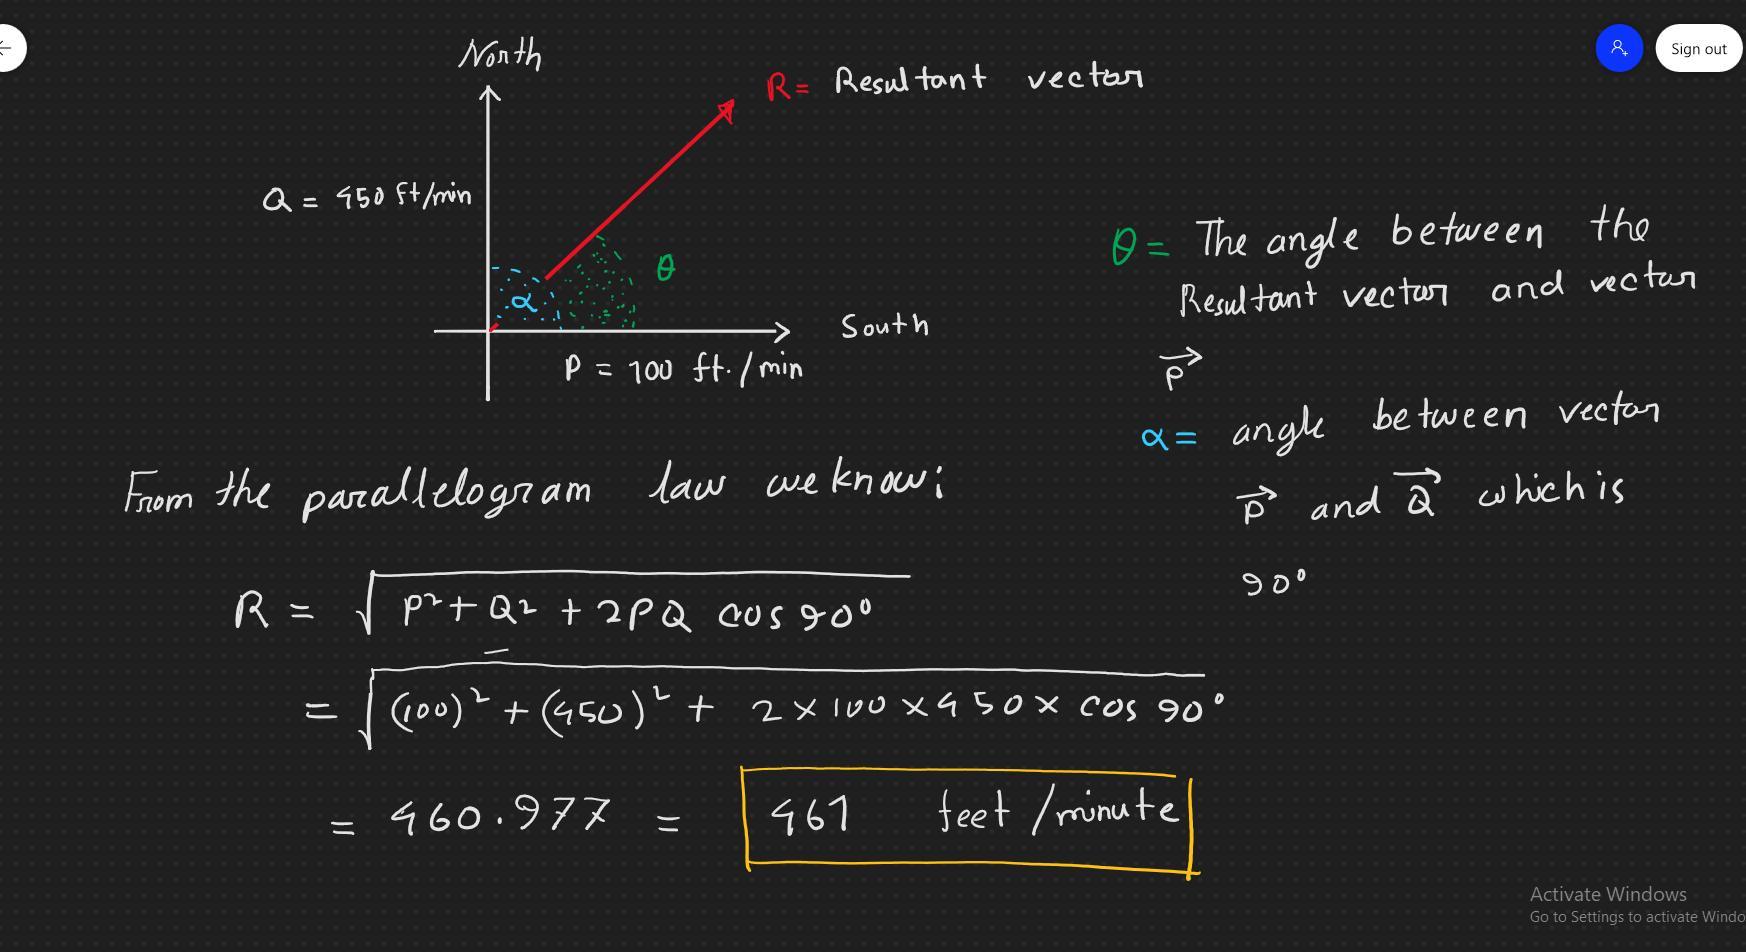 Sign out
North
R = Resultant vector
Q = 450 ft/min
θ
α
South
P = 100 ft./min
θ = The angle between the
Resultant vector and vector
P
α = angle between vector
P and Q which is
90°
From the parallelogram law we know;
R = √P² + Q² + 2PQ cos 90°
= √(100)² + (450)² + 2 × 100 × 450 × cos 90°
= 460.977 = 461 feet/minute
Activate Windows
Go to Settings to activate Windo